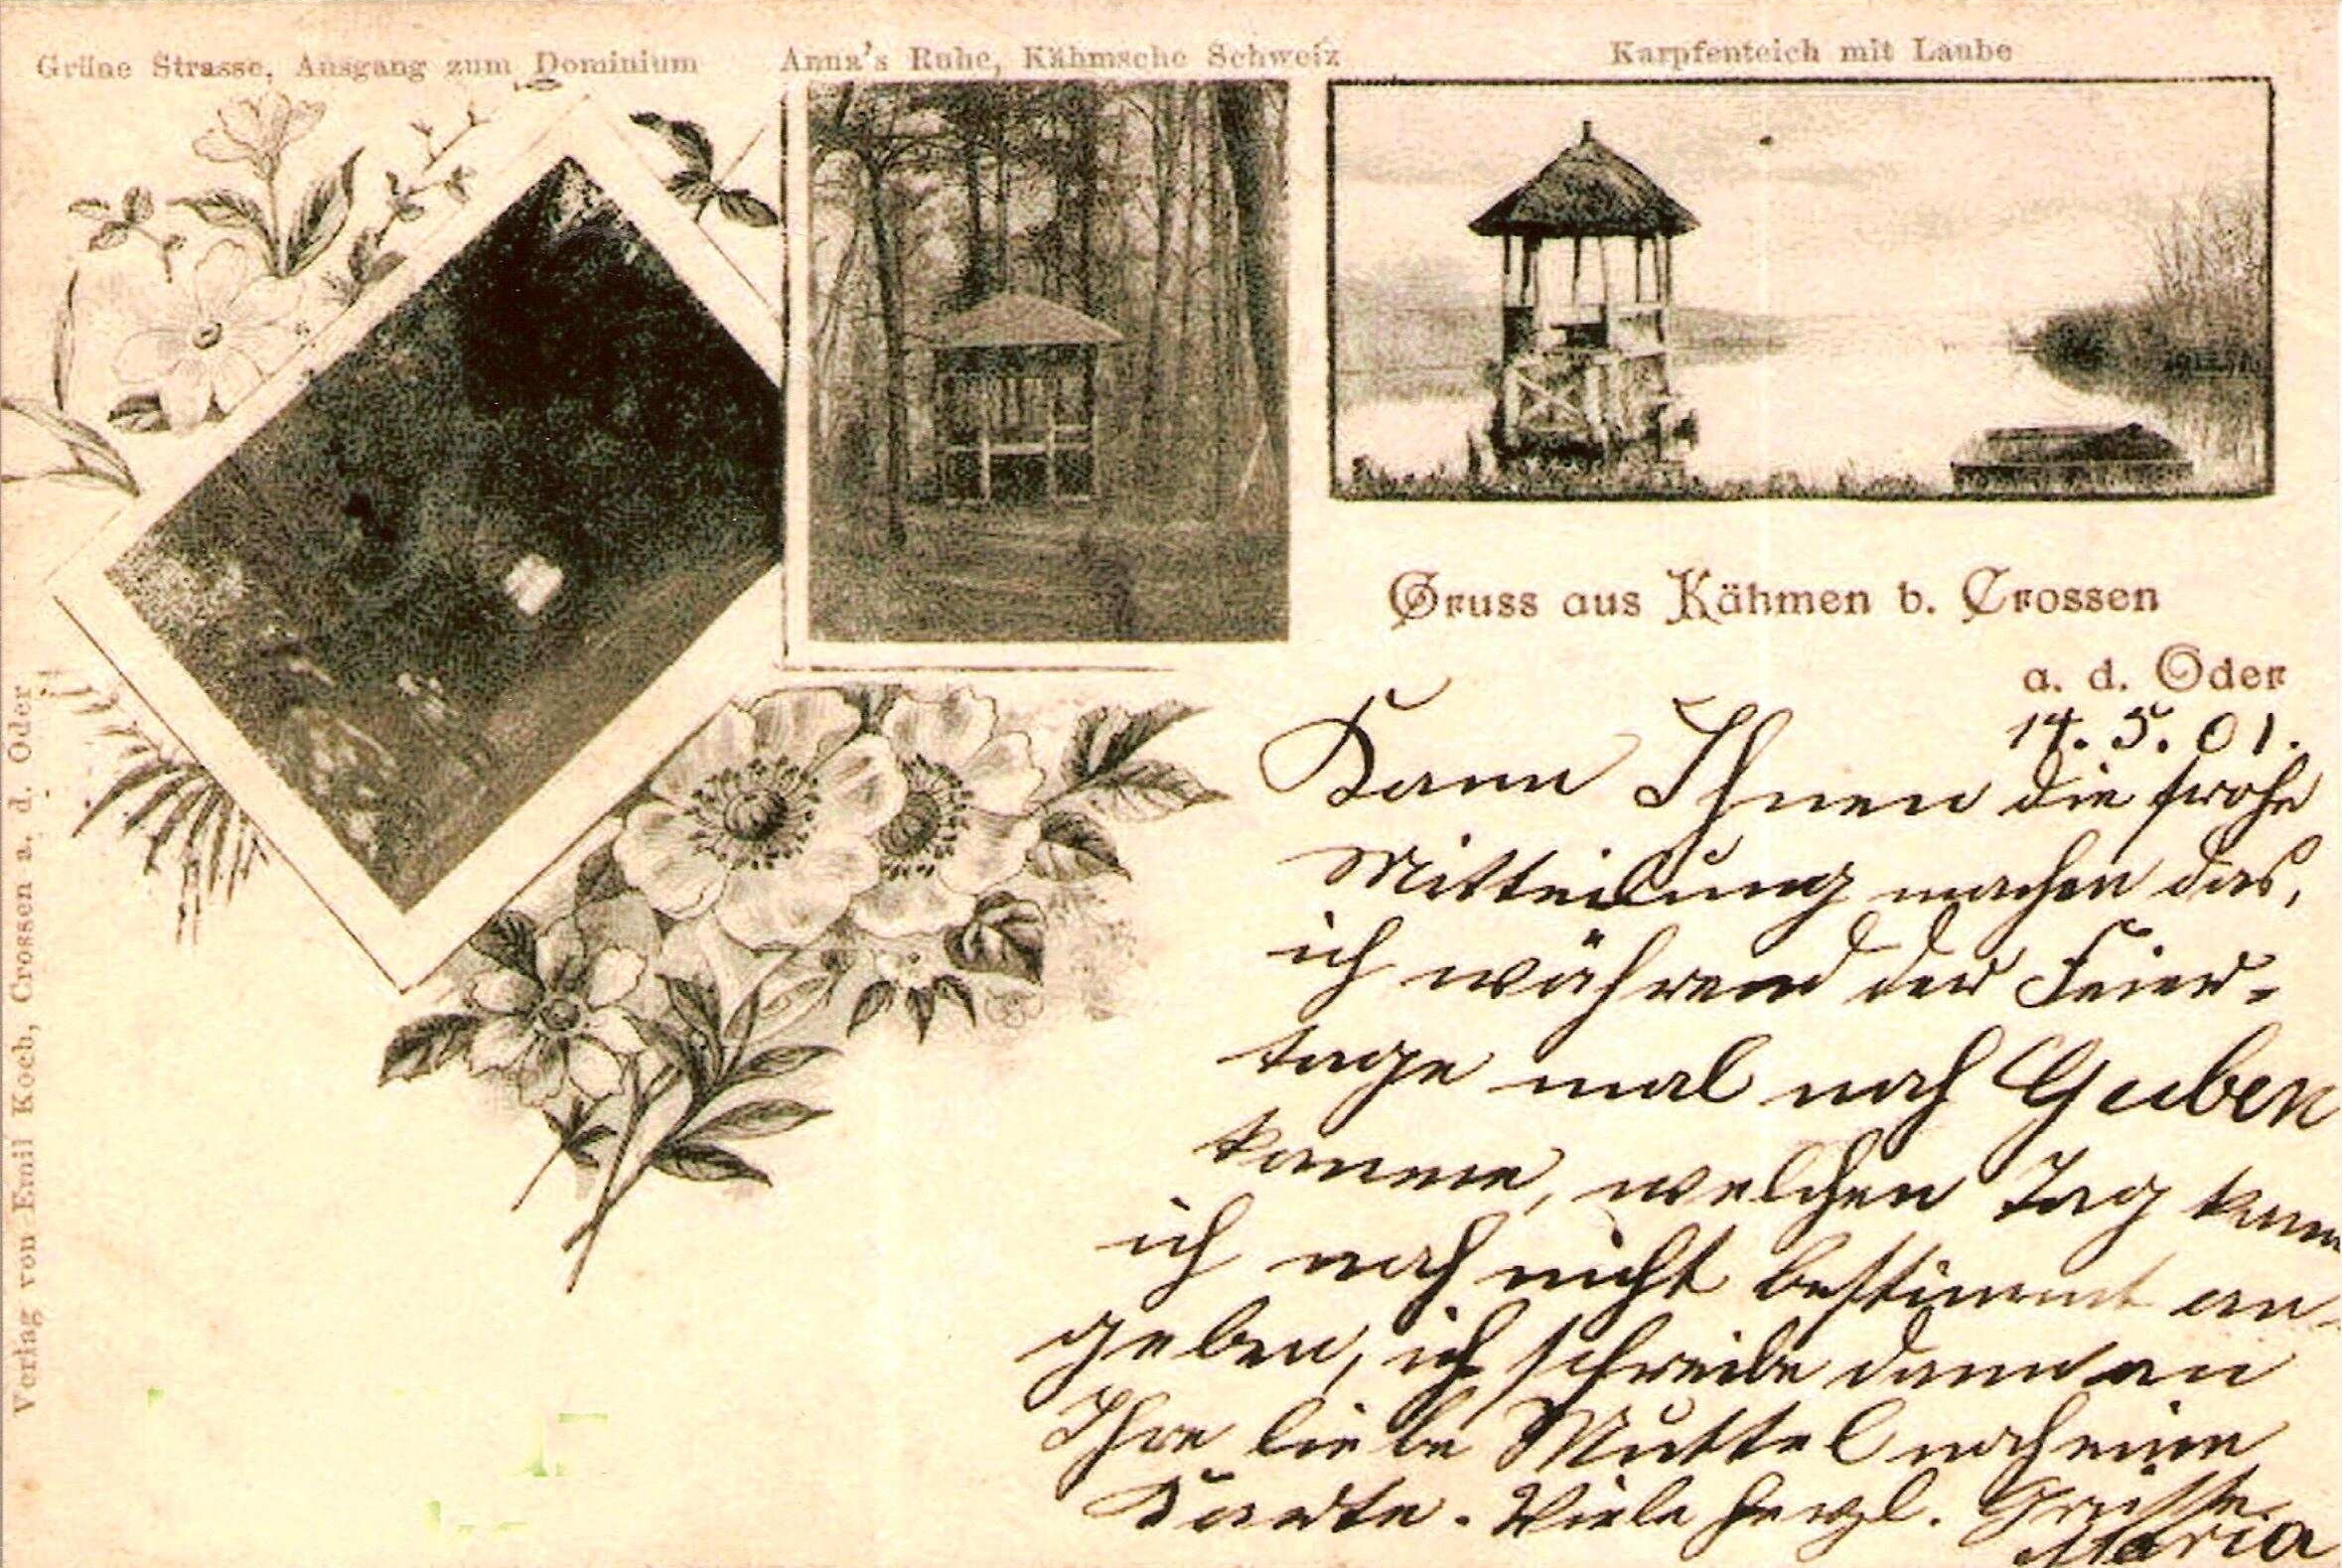 Grüne Strasse, Ausgang zum Dominium
Anna's Ruhe, Kähmsche Schweiz
Karpfenteich mit Laube
Gruss aus Kähmen b. Crossen
a. d. Oder
14. 5. 01.
Kann Ihnen die frohe
Mitteilung machen das,
ich während der Feier-
tage mal nach Guben
komme, welchen Tag kann
ich noch nicht bestimmt an-
geben, ich schreibe dann an
Ihre liebe Muttel noch eine
Karte. Viele herzl. Grüsse
Maria
Verlag von Emil Koch, Crossen a. d. Oder